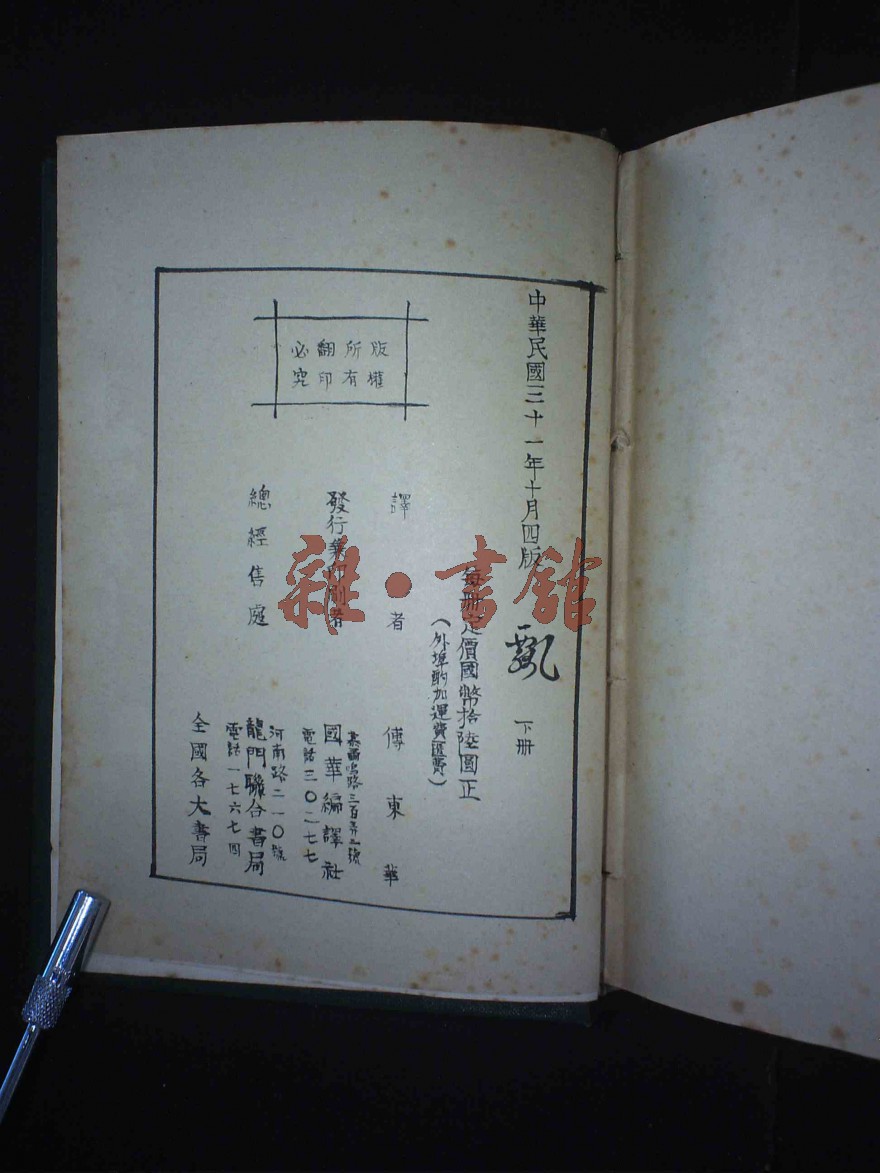 中華民國三十一年十月四版
飄 下册
每册定價國幣拾陸圓正
(外埠酌加運費匯費)
譯者 傅東華
發行兼印刷者
慕爾鳴路三百弄二號
國華編譯社
電話三〇二七七
總經售處
河南路二一〇號
龍門聯合書局
電話一七六七四
全國各大書局
版權
所有
翻印
必究
雜·書館